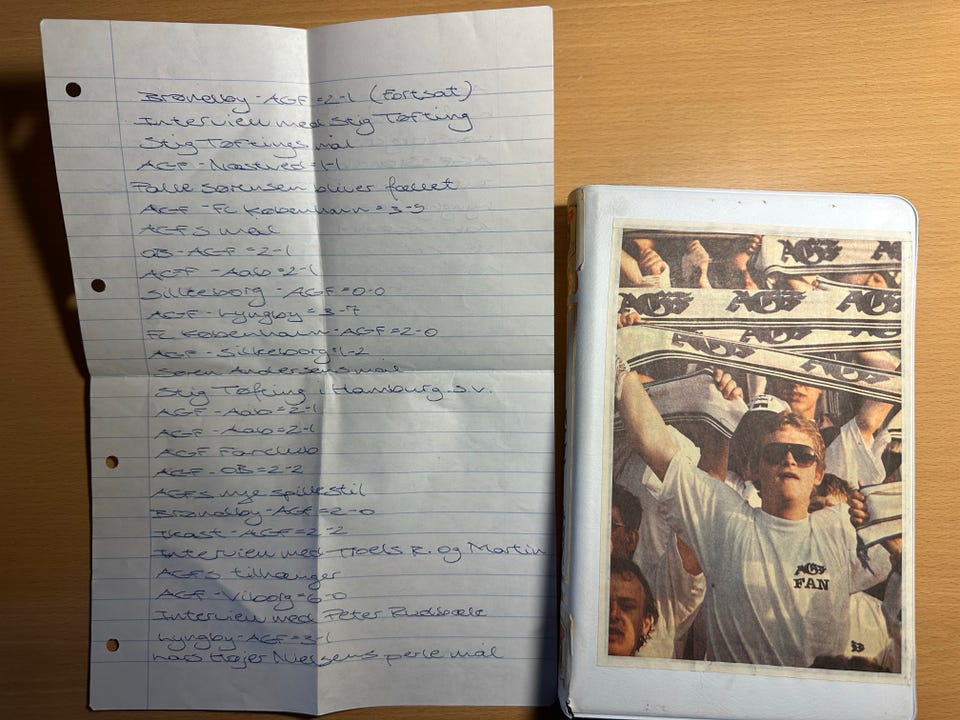 Brøndby-AGF=2-1 (Fortsat)
Interview med Stig Tøfting
Stig Tøftings mål
AGF-Næstved=1-1
Palle Sørensen bliver fældet
AGF-Fc København=3-5
AGFs mål
OB-AGF=2-1
AGF-AaB=2-1
Silkeborg-AGF=0-0
AGF-Lyngby=3-7
Fc København-AGF=2-0
AGF-Silkeborg=1-2
Søren Andersens mål
Stig Tøfting i Hamburg s.v.
AGF-AaB=2-1
AGF-AaB=2-1
AGF Fanclub
AGF-OB=2-2
AGFs nye spillestil
Brøndby-AGF=2-0
Ikast-AGF=2-2
Interview med Troels R. og Martin
AGFs tilhænger
AGF-Viborg=6-0
Interview med Peter Rudbæk
Lyngby-AGF=3-1
Lars Højer Nielsens perle mål
AGF
AGF
AGF
AGF
AGF
AGF
FAN